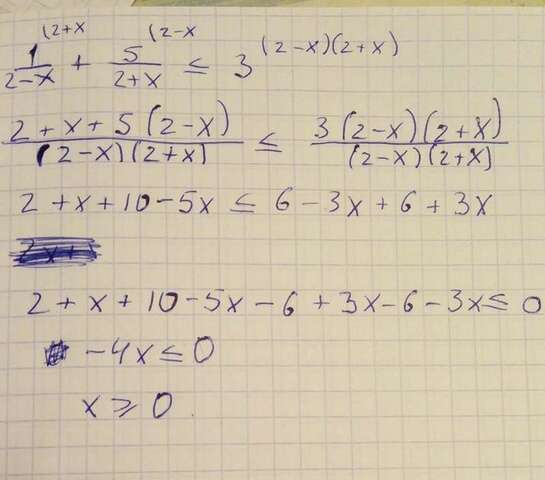 1/(2-x) (2+x + 5/(2+x) (2-x ≤ 3 (2-x)(2+x)
(2+x+5(2-x))/((2-x)(2+x)) ≤ (3(2-x)(2+x))/((2-x)(2+x))
2+x+10-5x ≤ 6-3x+6+3x
2+x+10-5x-6+3x-6-3x≤0
-4x≤0
x≥0